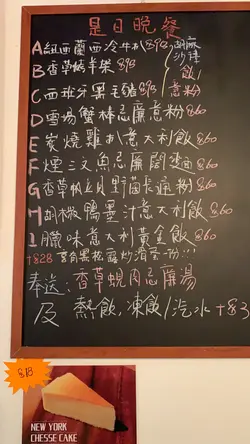 是日晚餐
A 紐西蘭西冷牛扒 $98
B 香草烤羊架 $98
C 西班牙黑毛豬 $98
胡麻
沙律
飯/
意粉
D 雪場蟹棒忌廉意粉 $60
E 炭燒雞扒意大利飯 $60
F 煙三文魚忌廉闊麵 $60
G 香草帆立貝野菌長通粉 $60
H 胡椒鴨墨汁意大利飯 $60
I 臘味意大利黃金飯 $60
+$28 享有黑松露炒滑蛋一份!!!
奉送: 香草蜆肉忌廉湯
及 熱飲,凍飲/汽水+$3
$18
NEW YORK
CHESSE CAKE